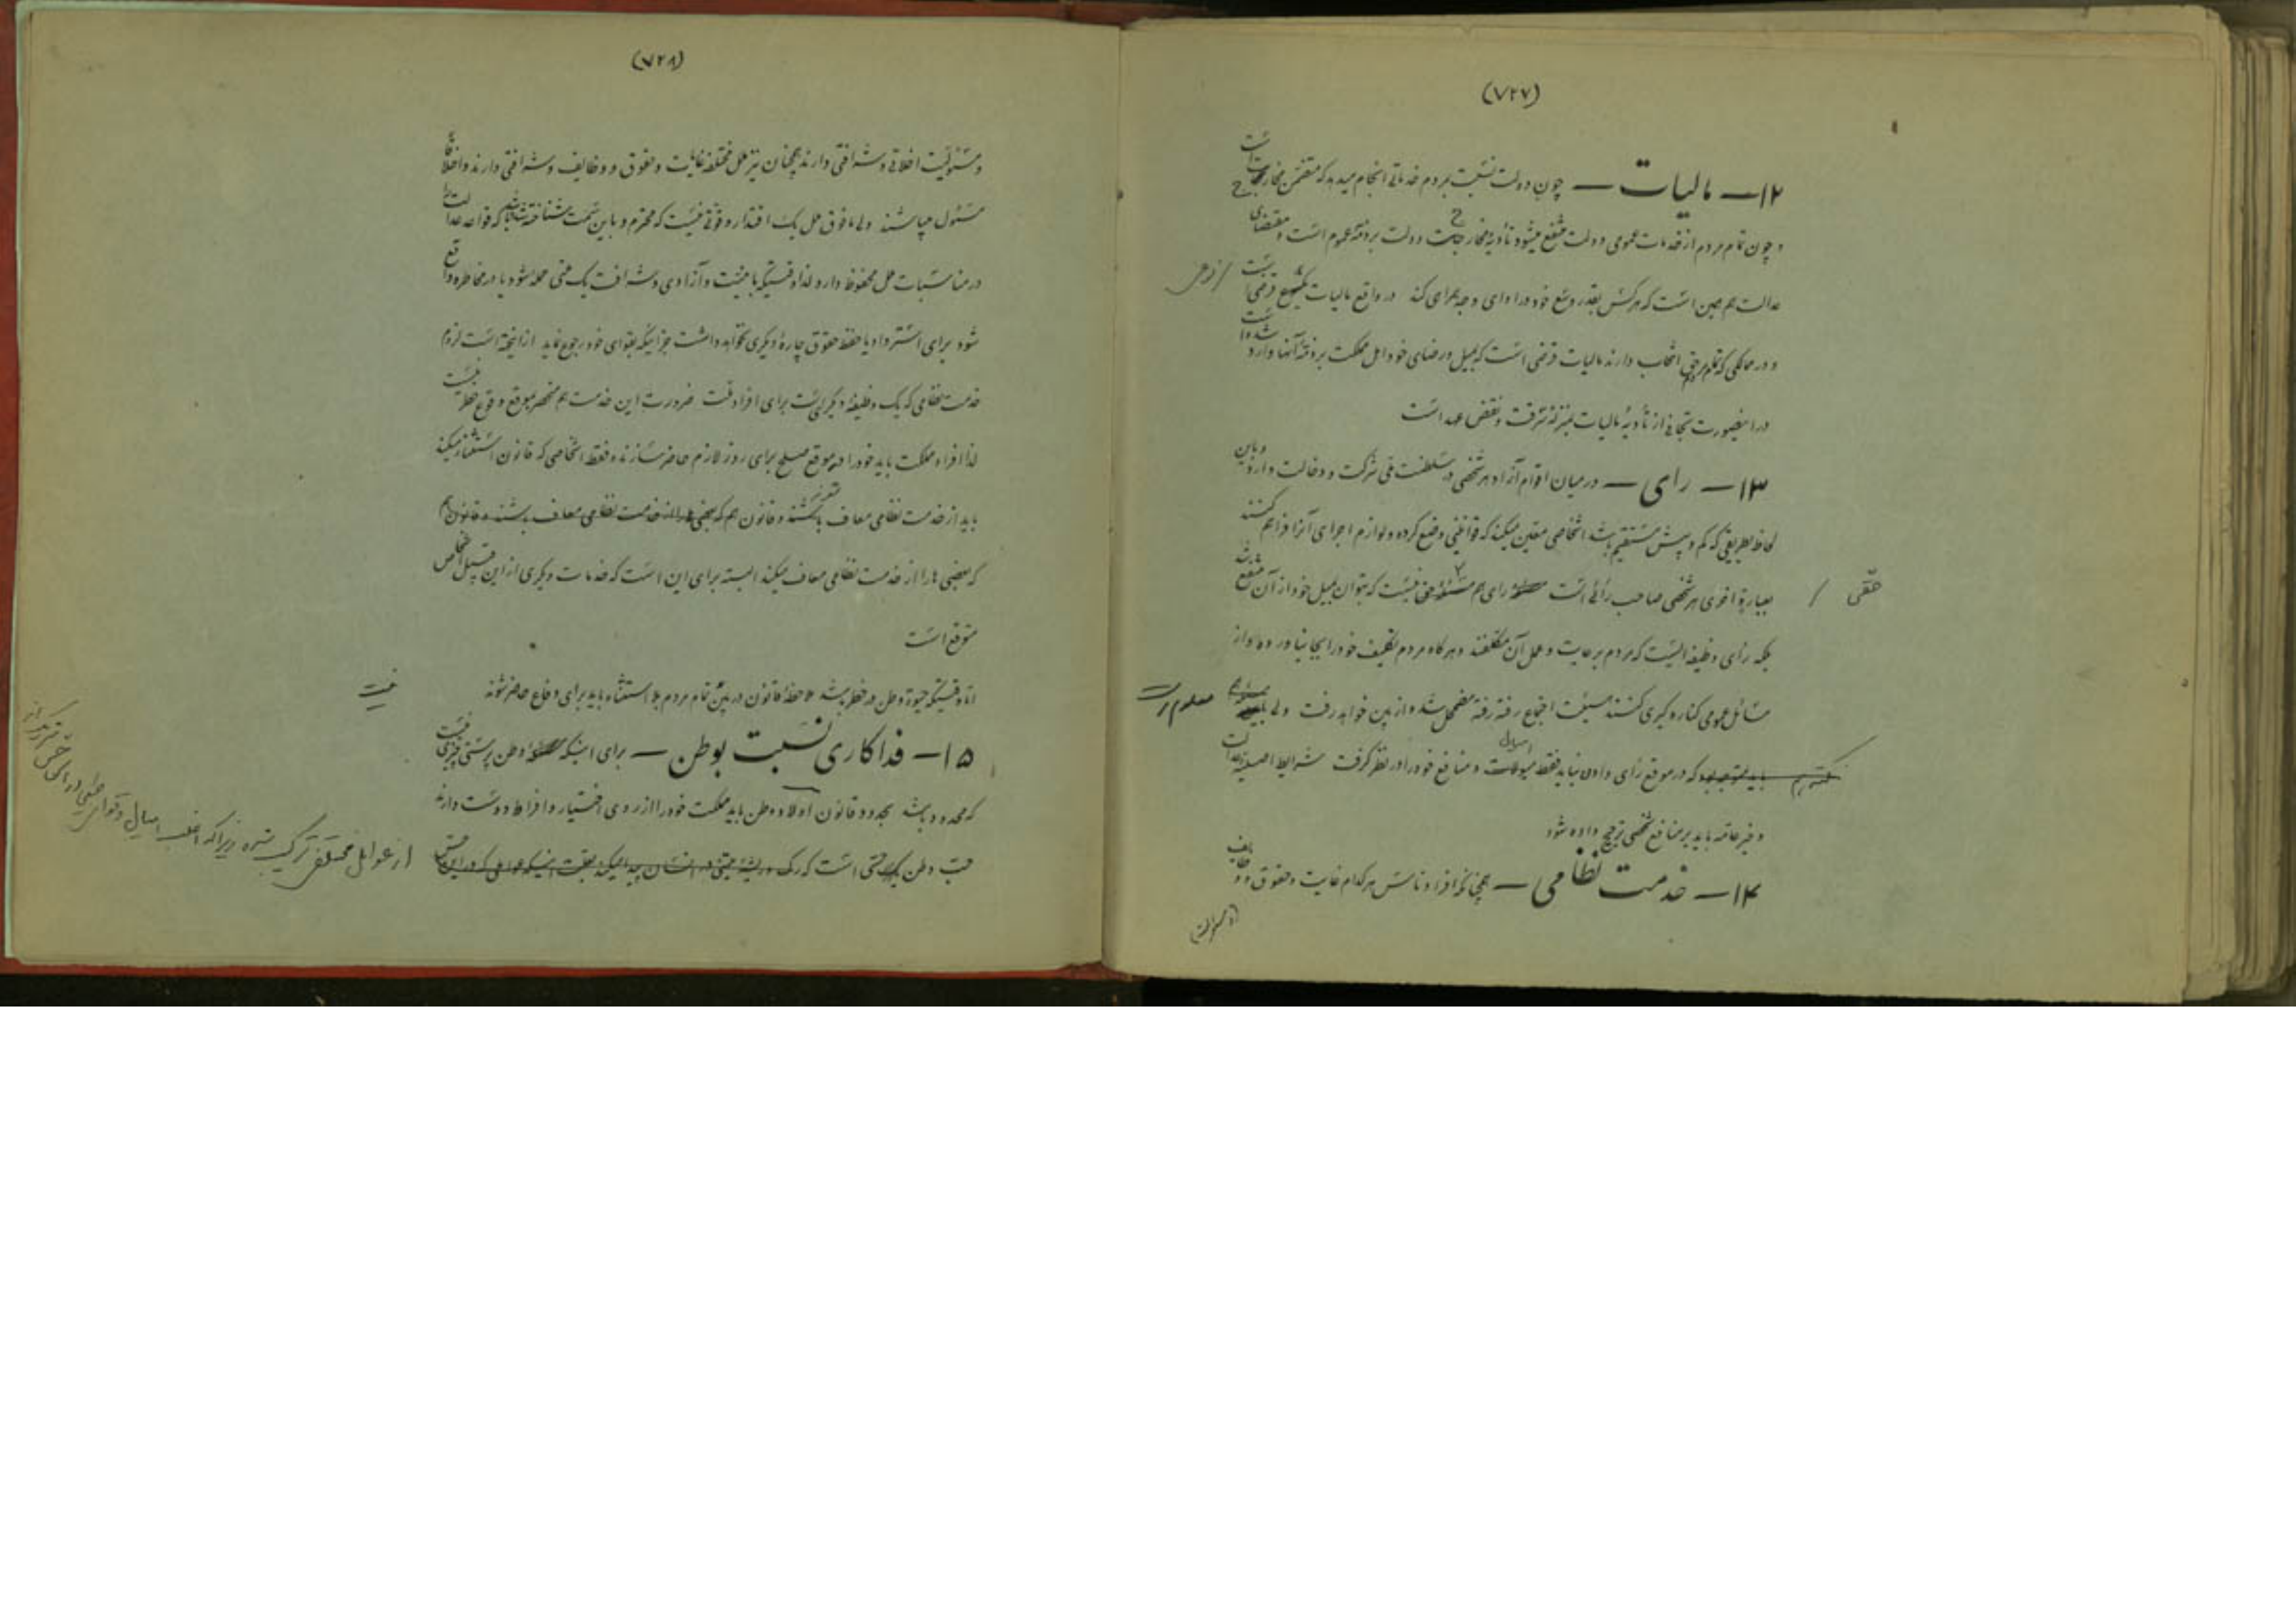 (۷۲۷)
۱۲ — مالیات — چون دولت نسبت بمردم خدماتی انجام میدهد که متضمن مخارج است
و چون تمام مردم از خدمات عمومی دولت منتفع میشوند تأدیهٔ مخارج دولت بر ذمهٔ عموم است و مقتضای
عدالت هم همین است که هر کس بقدر وسع خود در ادای وجه همراهی کند در واقع مالیات یکنوع قرضی است
و در ممالکی که تمام مردم حق انتخاب دارند مالیات قرضی است که بمیل و رضای خود اهل مملکت بر ذمهٔ آنها وارد شده است
در اینصورت تجافی از تأدیهٔ مالیات بمنزلهٔ سرقت و نقض عهد است
۱۳ — رای — در میان اقوام آزاد هر شخصی در سلطنت ملی شرکت و دخالت دارد و باین
لحاظ بطریقی که کم و بیش مستقیم باشد اشخاصی معین میکند که قوانینی وضع کرده و لوازم اجرای آنرا فراهم کنند
بعبارة اخری هر شخصی صاحب رأی است رای هم حقی نیست که بتوان بمیل خود از آن منتفع شد
حقی /
بلکه رأی وظیفه ایست که مردم برعایت و عمل آن مکلفند و هر گاه مردم تکلیف خود را بجا نیاورده و از
مسائل عمومی کناره گیری کنند هیئت اجتماع رفته رفته مضمحل شده از بین خواهد رفت ولی
معلوم است
که در موقع رأی دادن نباید فقط امیال و منافع خود را در نظر گرفت شرایط اصلیه عدالت
و خیر عامه باید بر منافع شخصی ترجیح داده شود
۱۴ — خدمت نظامی — همچنانکه افراد ناس هر کدام غایت و حقوق و وظایف
(و مسئولیت)
(۷۲۸)
و مسئولیت اخلاقی و شرافتی دارند همچنان نیز ملل مختلفه غایات و حقوق و وظایف و شرافتی دارند و اخلاقاً
مسئول میباشند ولی مافوق ملل یک اقتدار و قوتی نیست که محترم و باین سمت شناخته شده باشد که قواعد عدالت را
در مناسبات ملل محفوظ دارد لذا وقتیکه بامنیت و آزادی و شرافت یک ملتی حمله شود یا در مخاطره واقع
شود برای استرداد یا حفظ حقوق چارهٔ دیگری نخواهد داشت جز اینکه بقوای خود رجوع نماید از اینجهة است لزوم
خدمت نظامی که یک وظیفهٔ دیگریست برای افراد ملت ضرورت این خدمت هم منحصر بموقع وقوع خطر نیست
لذا افراد مملکت باید خود را در موقع صلح برای روز لازم حاضر سازند و فقط اشخاصی که قانون استثنا میکند
باید از خدمت نظامی معاف باشند و قانون هم
که بعضی ها را از خدمت نظامی معاف میکند البسته برای این است که خدمات دیگری از این قبیل اشخاص
متوقع است
اما وقتیکه حیوة وطن در خطر باشد ملاحظهٔ قانون در بین نیست تمام مردم بلا استثناء باید برای دفاع حاضر شوند
۱۵ — فداکاری نسبت بوطن — برای اینکه وطن پرستی چیزی نیست
که محدود باشد بحدود قانون اولاد وطن باید مملکت خود را از روی اختیار و افراط دوست دارند
حب وطن یک حسی است که
از عوامل مختلفه ترکیب شده زیرا که اغلب امیال و قوای